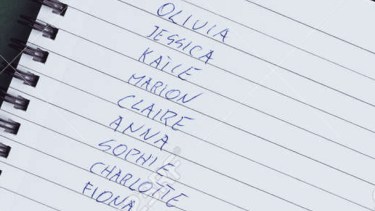 OLIVIA
JESSICA
KATIE
MARION
CLAIRE
ANNA
SOPHIE
CHARLOTTE
FIONA